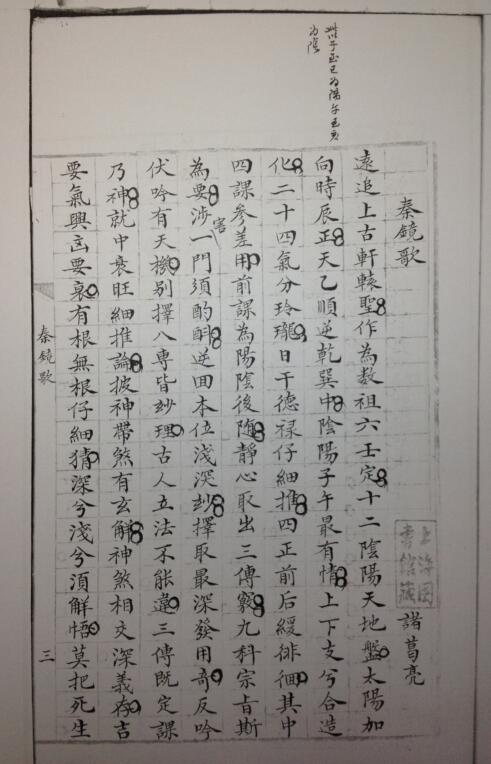 卅子至巳为陽午至亥
为陰
秦鏡歌
諸葛亮
遠追上古軒轅聖作為数祖六壬定十二陰陽天地盤太陽加
向時辰正天乙順逆乾巽中陰陽子午最有情上下支兮合造
化二十四氣分玲瓏日干德禄仔細推四正前后緩徘徊其中
四課參差用前課為陽陰後随静心取出三傳竅九科宗旨斯
為要涉害一門須酌酙逆囬本位淺深玅擇取最深發用奇反吟
伏吟有天機别擇八専皆玅理古人立法不能違三傳既定課
乃神就中衰旺細推論披神帶煞有玄解神煞相交深義存吉
要氣興凶要衰有根無根仔細猜深兮淺兮湏解悟莫把死生
秦鏡歌
三
上海図
書館藏